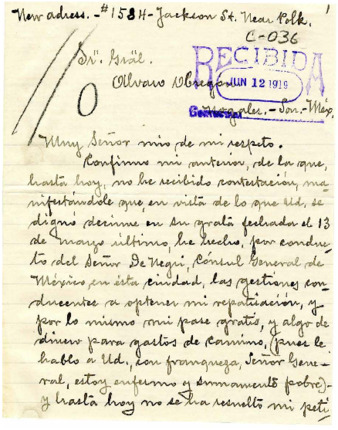 New adress. - #1524 - Jackson St. Near Polk.
C-036
RECIBIDA
JUN 12 1919
Sr. Gräl.
Alvaro Obregon
Nogales. - Son. - Méx.
Muy Señor mio de mi respeto.
Confirmo mi anterior, de la que,
hasta hoy, no he recibido contestación, ma
nifestándole que, en vista de lo que Ud, se
dignó decirme en su grata fechada el 13
de marzo último, he hecho, por conduc
to del Señor De Negri, Cónsul General de
México en ésta ciudad, las gestiones con
ducentes a optener mi repatriación, y
por lo mismo mi pase gratis, y algo de
dinero para gastos de camino, (pues le
hablo a Ud, con franqueza, Señor Gene-
ral, estoy enfermo y sumamente pobre)
y hasta hoy no se ha resuelto mi peti